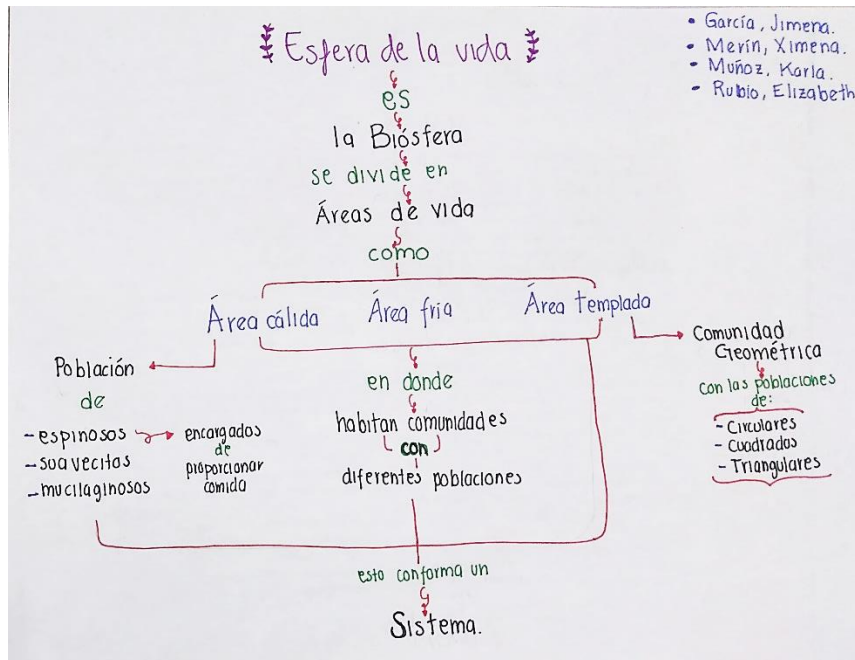 Esfera de la vida
• García, Jimena.
• Merín, Ximena.
• Muñoz, Karla.
• Rubio, Elizabeth
es
la Biósfera
se divide en
Áreas de vida
como
Área cálida
Área fria
Área templado
Población
de
- espinosos
- suavecitos
- mucilaginosos
encargados
de
proporcionar
comida
en donde
habitan comunidades
con
diferentes poblaciones
Comunidad
Geométrica
con las poblaciones
de:
- Circulares
- Cuadrados
- Triangulares
esto conforma un
Sistema.